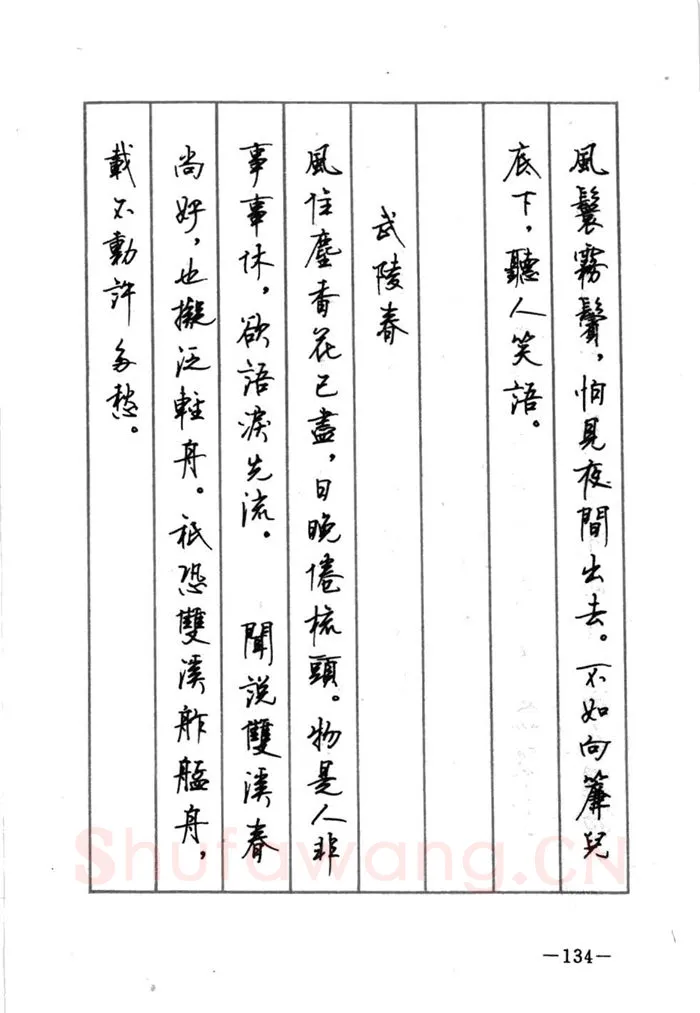 風鬟霧鬢，怕見夜間出去。不如向簾兒
底下，聽人笑語。
武陵春
風住塵香花已盡，日晚倦梳頭。物是人非
事事休，欲語淚先流。 聞說雙溪春
尚好，也擬泛輕舟。祇恐雙溪舴艋舟，
載不動許多愁。
—134—
Shufawang.CN